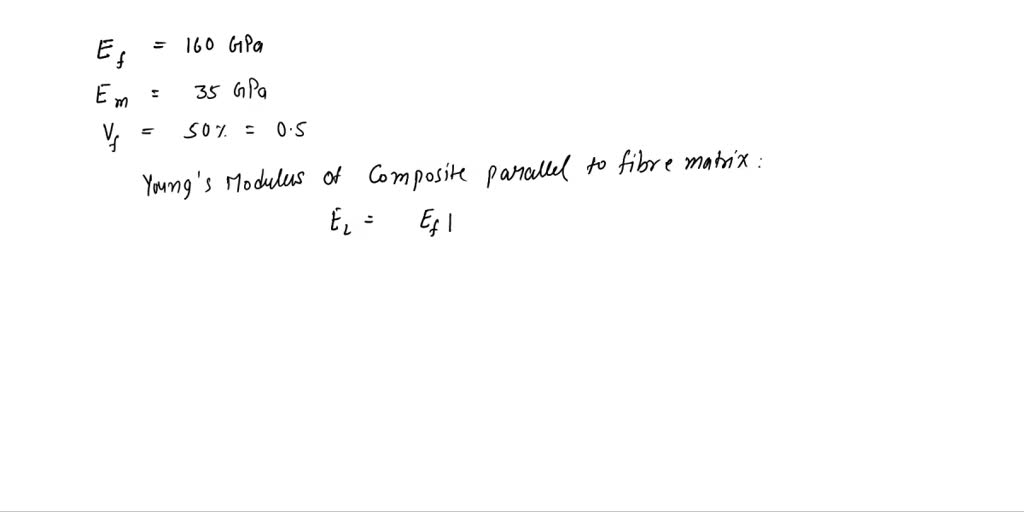 E_f = 160 GPa
E_m = 35 GPa
V_f = 50% = 0.5
Young's Modulus of Composite parallel to fibre matrix:
E_L = E_f |